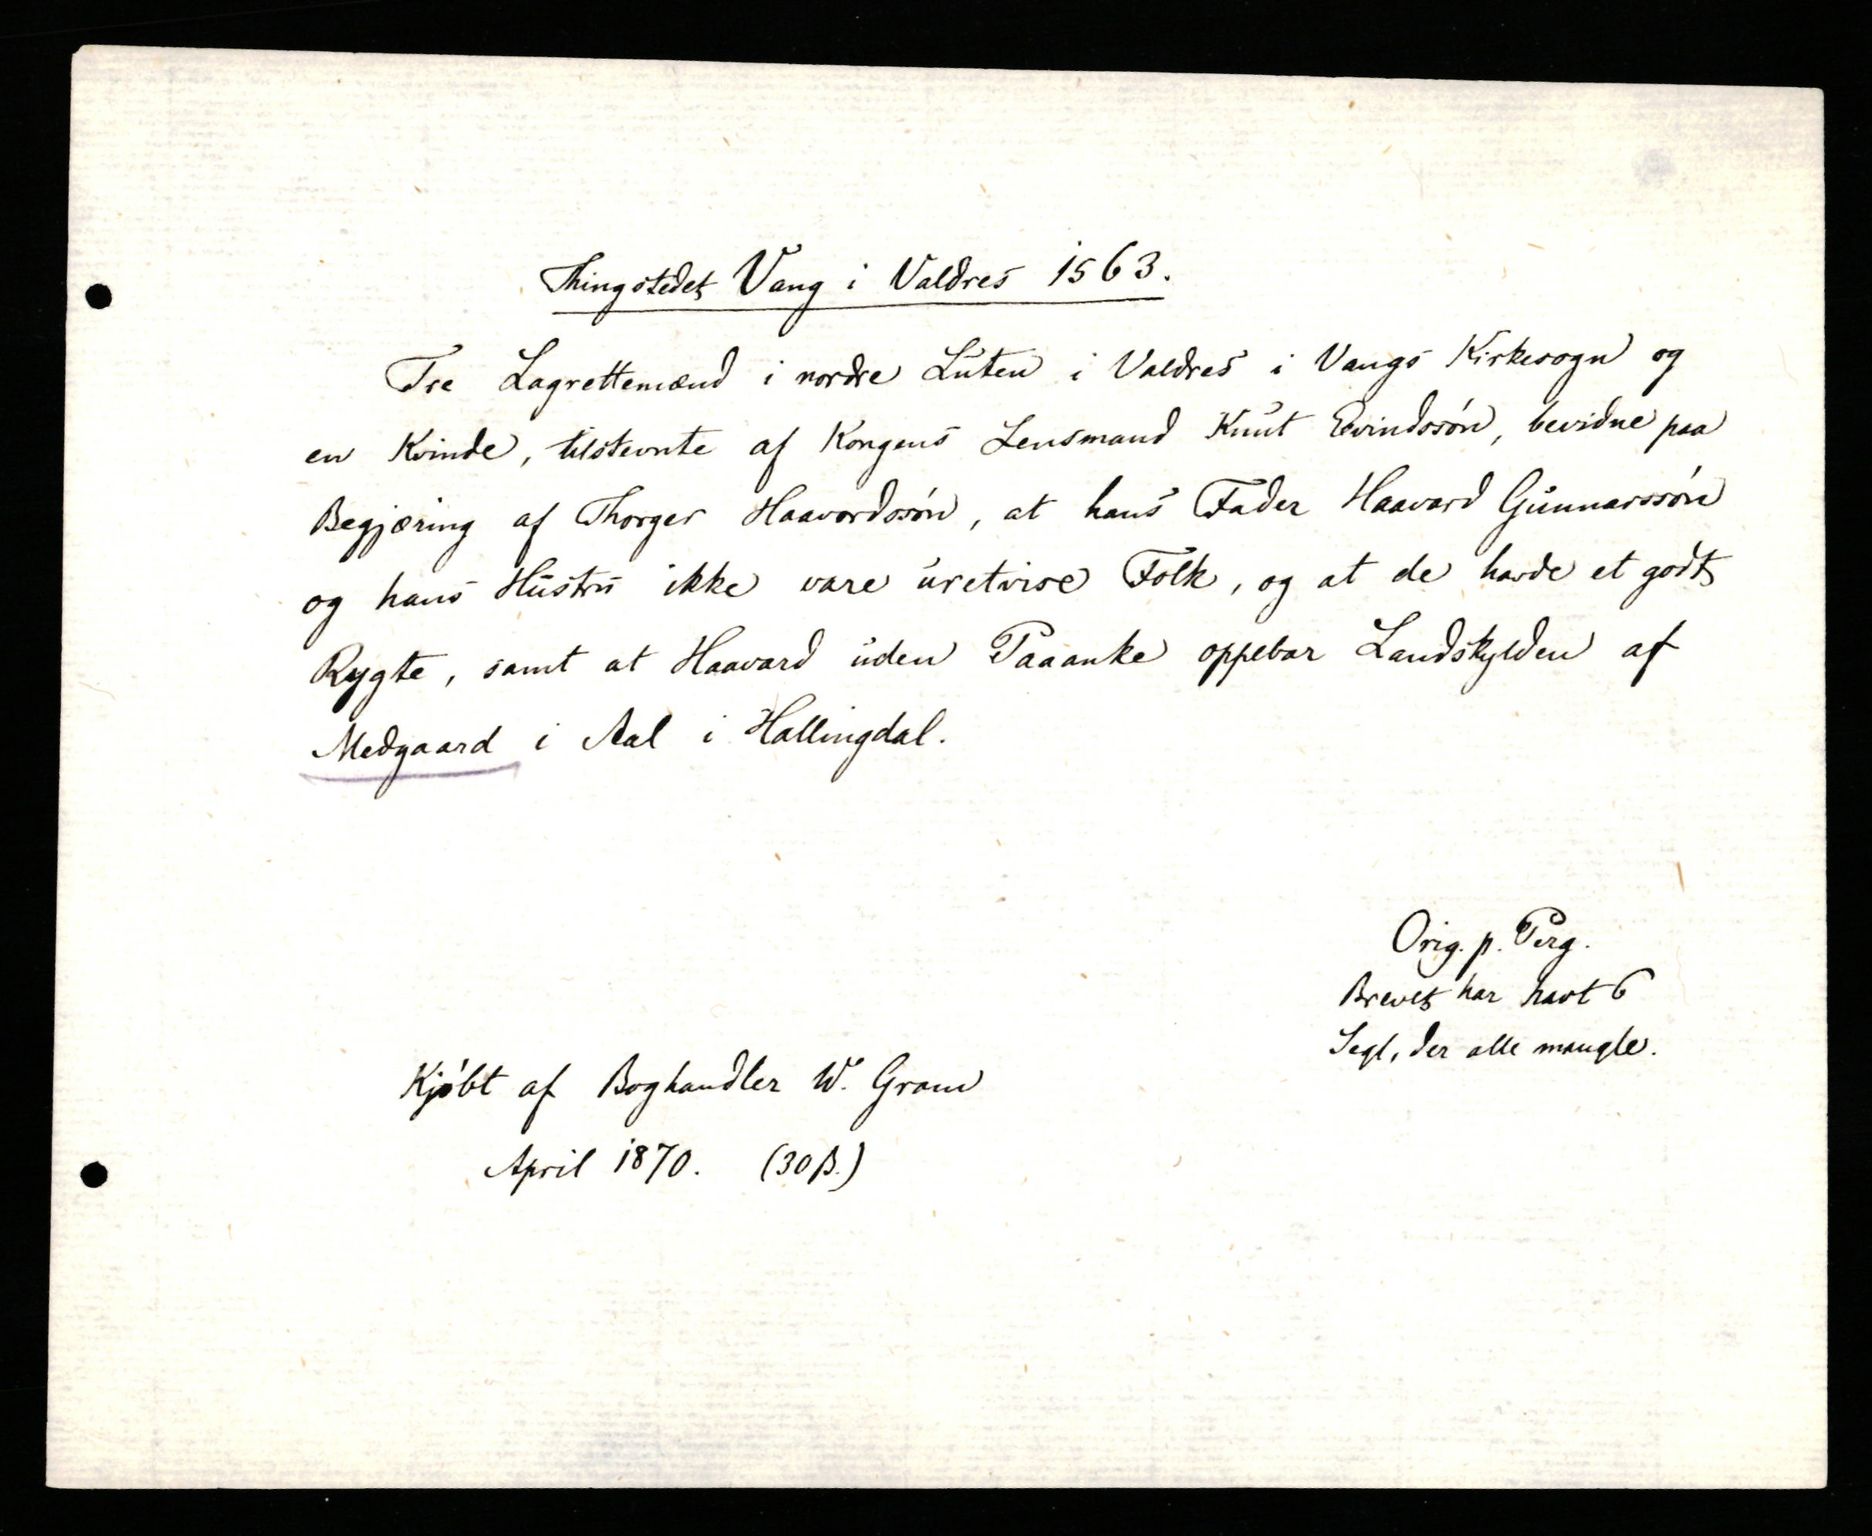 Thingstedet Vang i Valdres 1563.
Tre Lagrettemænd i nordre Luten i Valdres i Vangs Kirkesogn og
en Kvinde, tilstevnte af Kongens Lensmand Knut Eivindssøn, bevidne paa
Begjæring af Thorger Haavardssøn, at hans Fader Haavard Gunnarssøn
og hans Hustru ikke vare uretvise Folk, og at de havde et godt
Rygte, samt at Haavard uden Paaanke oppebar Landskylden af
Medgaard i Aal i Hallingdal.
Orig. p. Perg.
Brevet har havt 6
Segl, der alle mangle.
Kjøbt af Boghandler W. Gram
April 1870. (30 β.)